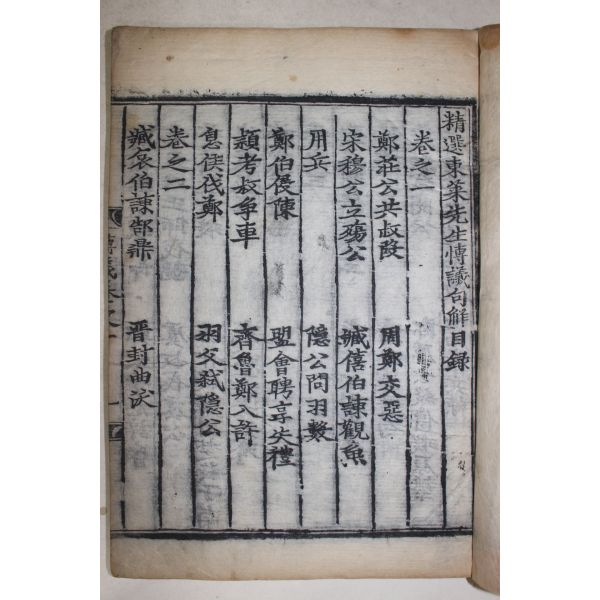 精選東萊先生愽議句解目録
卷之一
鄭莊公共叔段 周鄭交惡
宋穆公立殤公 臧僖伯諫觀魚
用兵 隱公問羽數
鄭伯侵陳 盟會聘享失禮
頴考叔爭車 齊魯鄭入許
息侯伐鄭 羽父弑隱公
卷之二
臧哀伯諫郜鼎 晋封曲沃